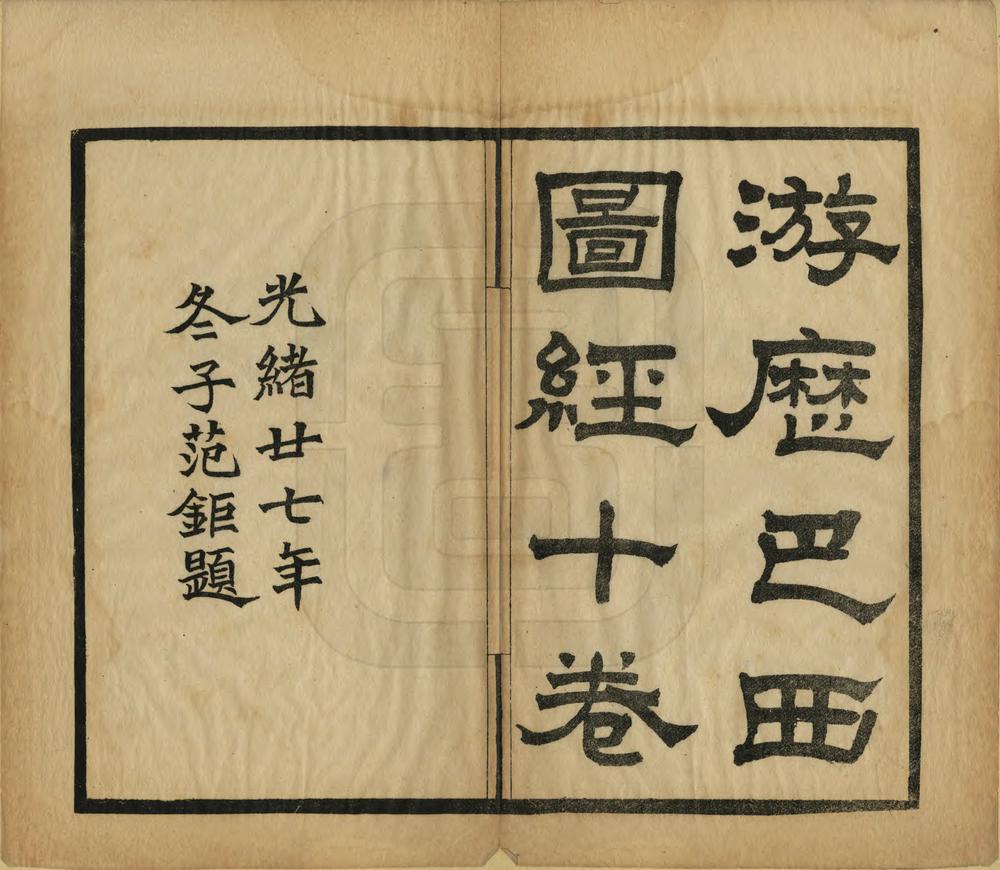 游歷巴西
圖經十卷
光緒廿七年
冬子范鉅題